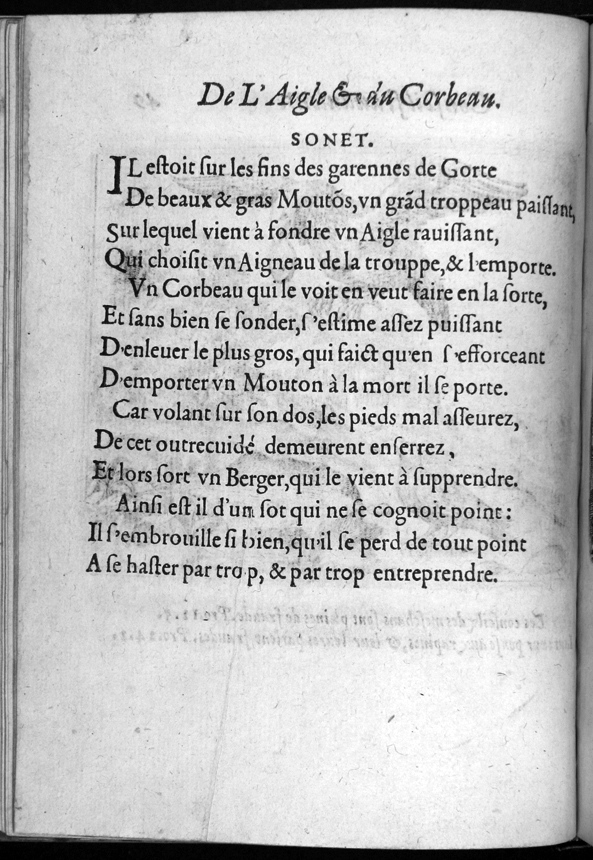 De L'Aigle & du Corbeau.
SONET.
IL eſtoit ſur les fins des garennes de Gorte
De beaux & gras Moutõs, vn grãd troppeau paiſſant,
Sur lequel vient à fondre vn Aigle rauiſſant,
Qui choiſit vn Aigneau de la trouppe, & l'emporte.
Vn Corbeau qui le voit en veut faire en la ſorte,
Et ſans bien ſe ſonder, ſ'eſtime aſſez puiſſant
D'enleuer le plus gros, qui faict qu'en ſ'efforceant
D'emporter vn Mouton à la mort il ſe porte.
Car volant ſur ſon dos, les pieds mal aſſeurez,
De cet outrecuidé demeurent enſerrez,
Et lors ſort vn Berger, qui le vient à ſupprendre.
Ainſi eſt il d'un ſot qui ne ſe cognoit point:
Il ſ'embrouille ſi bien, qu'il ſe perd de tout point
A ſe haſter par trop, & par trop entreprendre.